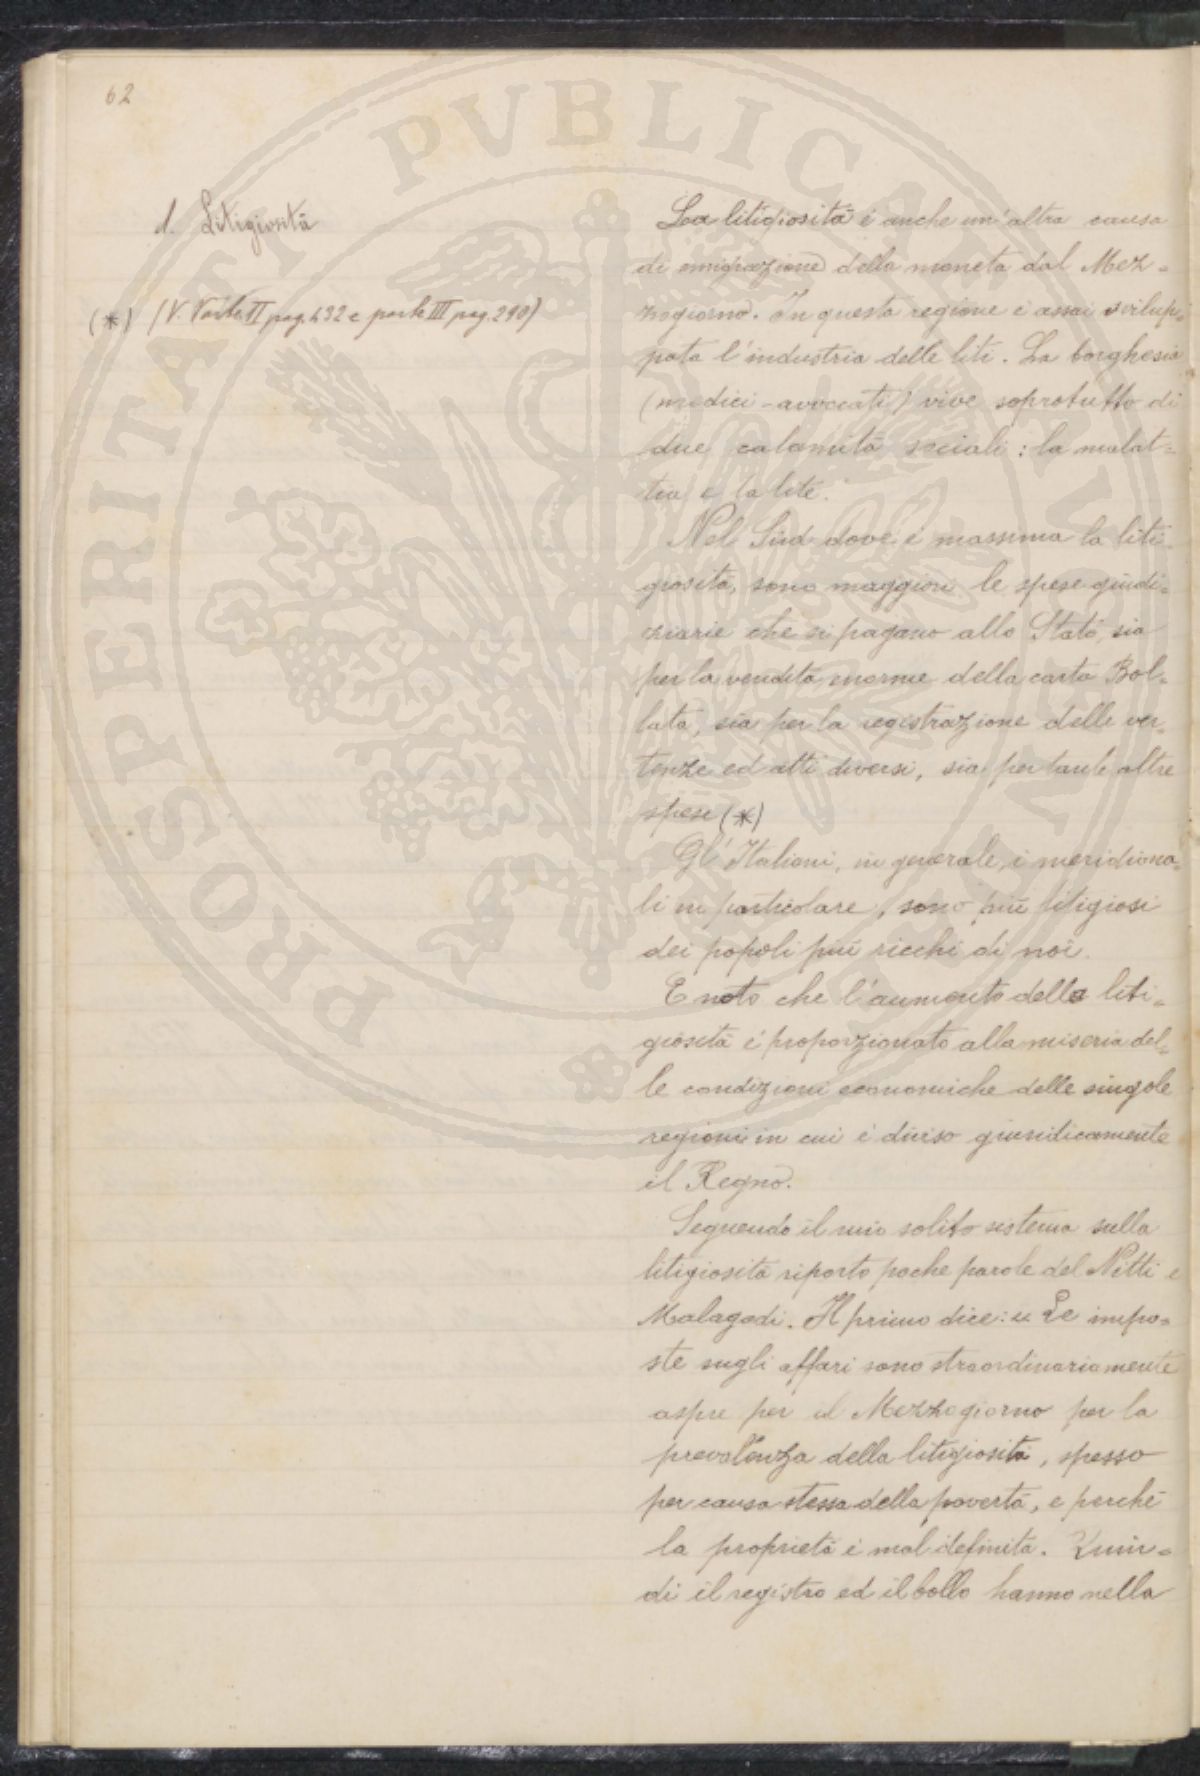 62
1. Litigiosità
(*) (V. Parte II pag. 432 e parte III pag. 290)
La litigiosità è anche un'altra causa
di emigrazione della moneta dal Mez=
zogiorno. In questa regione è assai svilup=
pata l'industria delle liti. La borghesia
(medici - avvocati) vive soprotutto di
due calamità sociali: la malat=
tia e la lite.
Nel Sud dove è massima la liti=
giosità, sono maggiori le spese giudi=
ziarie che si pagano allo Stato, sia
per la vendita enorme della carta Bol=
lata, sia per la registrazione delle ver=
tenze ed atti diversi, sia per tante altre
spese (*)
Gl'Italiani, in generale, i meridiona=
li in particolare, sono più litigiosi
dei popoli più ricchi di noi.
E noto che l'aumento della liti=
giosità è proporzionato alla miseria del=
le condizioni economiche delle singole
regioni in cui è diviso giuridicamente
il Regno.
Seguendo il mio solito sistema sulla
litigiosità riporto poche parole del Nitti e
Malagodi. Il primo dice: « Le impo=
ste sugli affari sono straordinariamente
aspre per il Mezzogiorno per la
prevalenza della litigiosità, spesso
per causa stessa della povertà, e perché
la proprietà è mal definita. Quin=
di il registro ed il bollo hanno nella
PROSPERITATI PVBLICAE